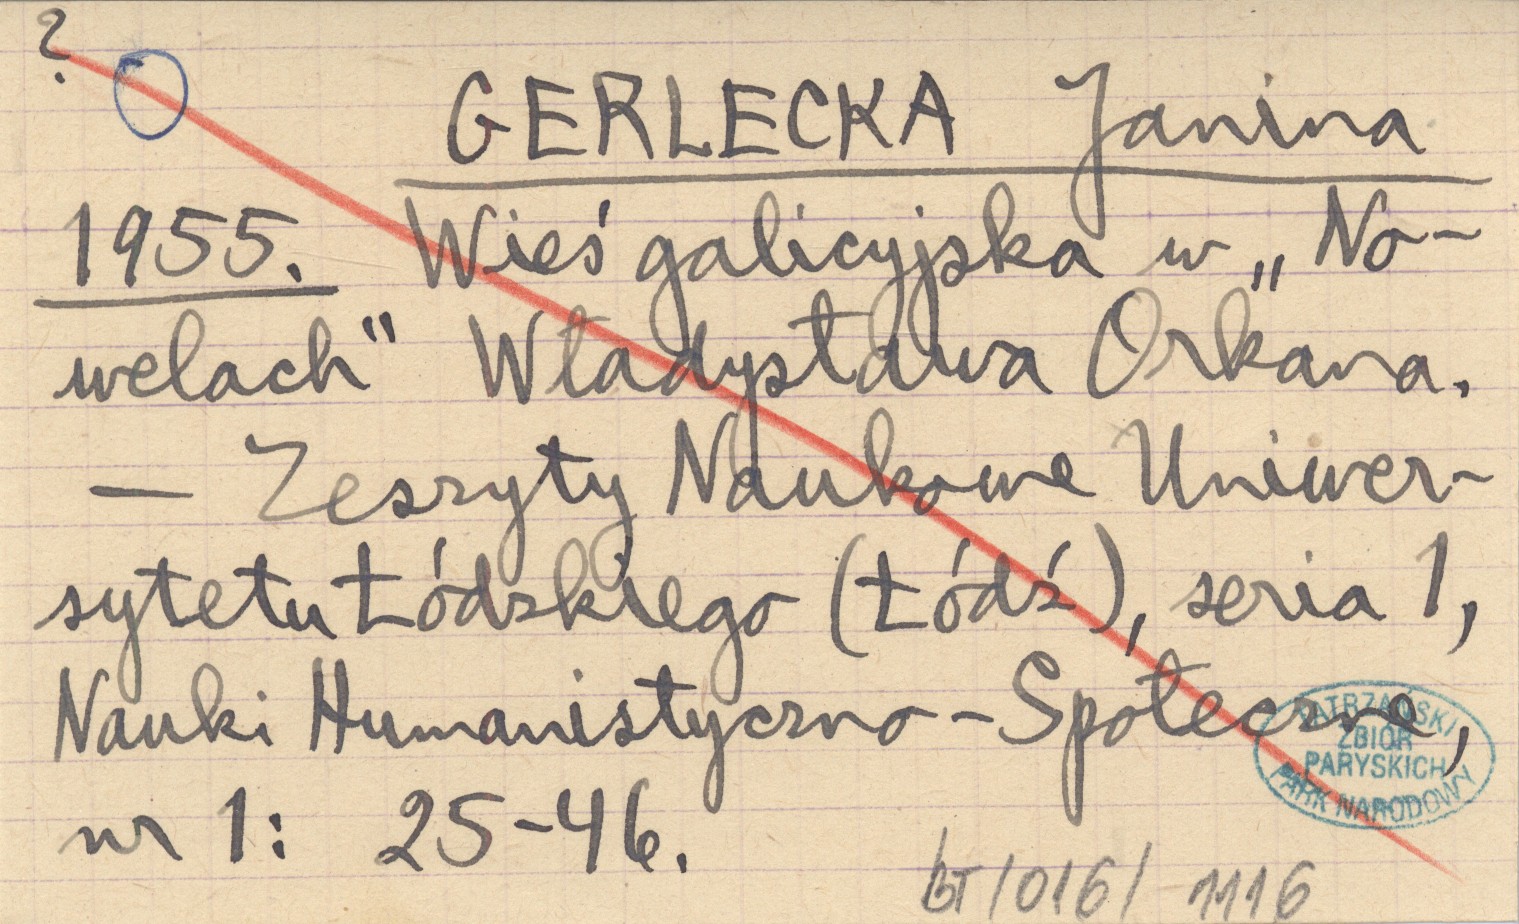 ?
GERLECKA Janina
1955. Wieś galicyjska w „No-
welach" Władysława Orkana.
— Zeszyty Naukowe Uniwer-
sytetu Łódzkiego (Łódź), seria 1,
Nauki Humanistyczno-Społeczne,
nr 1: 25-46.
TATRZAŃSKI
ZBIÓR
PARYSKICH
PARK NARODOWY
BT/016/ 1116